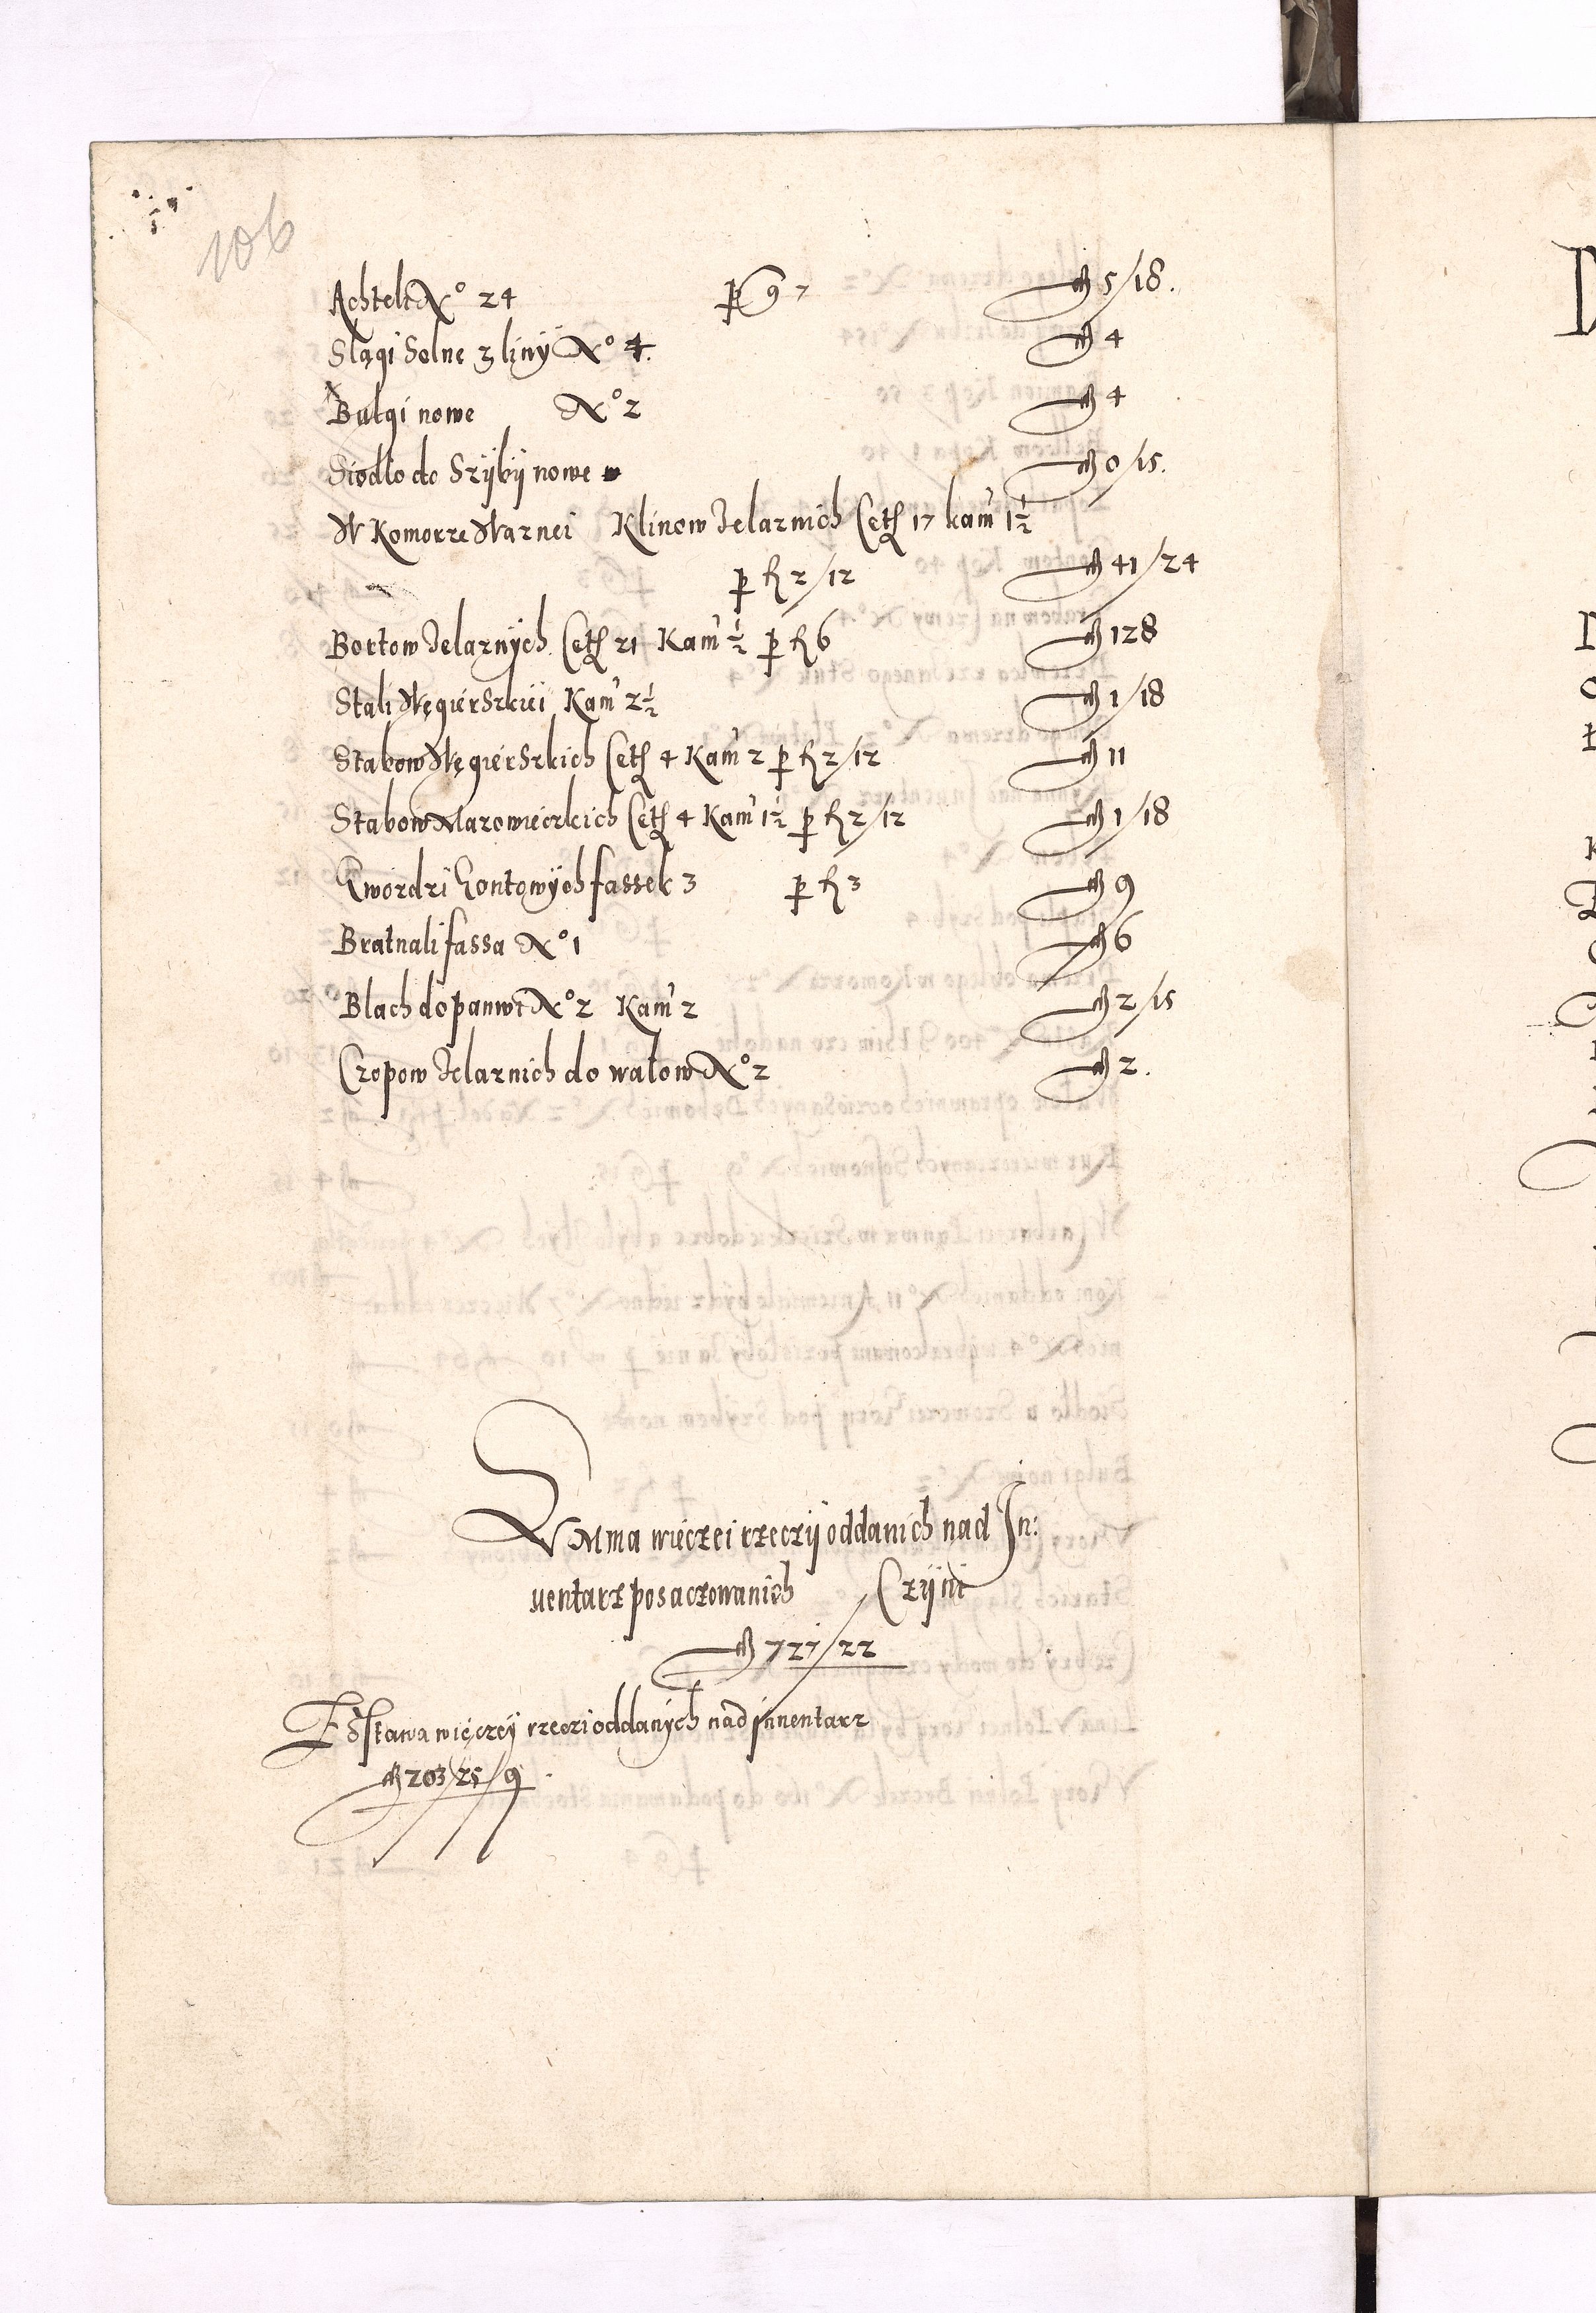 106
Achtelt No 24 p g 7 M 5/18.
Slągi Solne z liny No 4. M 4
Bulgi nowe No 2 M 4
Siodło do Szyby nowe M 0/15.
W Komorze Warnei Klinow Zelaznich Cet 17 kam 1½
p fl 2/12 M 41/24
Bortow Zelaznych Cet 21 Kam ½ p fl 6 M 128
Stali Węgierskiei Kam 2½ M 1/18
Stabow Węgierskich Cet 4 Kam 2 p fl 2/12 M 11
Stabow Mazowieckich Cet 4 Kam 1½ p fl 2/12 M 1/18
Gwozdzi Gontowych fassek 3 p fl 3 M 9
Bratnali fassa No 1 M 6
Blach do panwi No 2 Kam 2 M 2/15
Czopow Zelaznich do wałow No 2 M 2.
Summa więczei rzeczy oddanich nad In:
uentarz posaczowanich Czyni
M 727/22
Zostawa więczey rzeczi oddanych nad innentarz
M 203/25/9